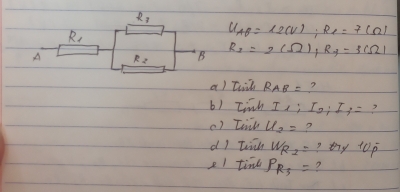 R3
R1
A
B
R2
UAB = 12(V) ; R1 = 7(Ω)
R2 = 2 (Ω) ; R3 = 3(Ω)
a) Tính RAB = ?
b) Tính I1 ; I2 ; I3 = ?
c) Tính U2 = ?
d) Tính WR2 = ? 10p
e) Tính PR3 = ?